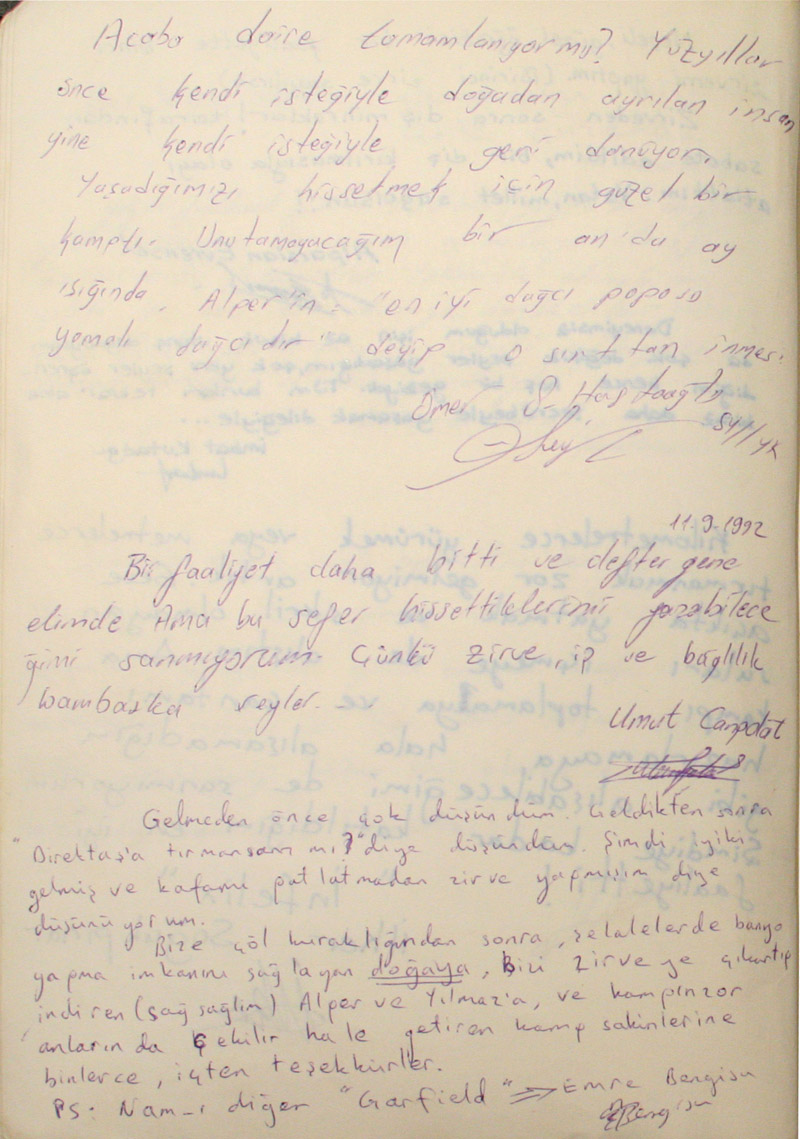 Acaba daire tamamlanıyor mu? Yüzyıllar
önce kendi isteğiyle doğadan ayrılan insan
yine kendi isteğiyle geri dönüyor.
Yaşadığımızı hissetmek için güzel bir
kamptı. Unutamayacağım bir an'da ay
ışığında, Alper'in "en iyi dağcı poposu
yamalı dağcıdır" deyip o sırttan inmesi.
Ömer S.
11.9.1992
Bir faaliyet daha bitti ve defter gene
elimde Ama bu sefer hissettiklerimi yazabilece
ğimi sanmıyorum. Çünkü zirve, ip ve bağlılık
bambaşka şeyler.
Umut Canpolat
Gelmeden önce çok düşündüm. Geldikten sonra
"Direktaş'a tırmansam mı?" diye düşündüm. Şimdi iyiki
gelmiş ve kafamı patlatmadan zirve yapmışım diye
düşünüyorum.
Bize çöl kuraklığından sonra, şelalelerde banyo
yapma imkanını sağlayan doğaya, Bizi zirveye çıkartıp
indiren (sağ sağlim) Alper ve Yılmaz'a, ve kampın zor
anlarında çekilir hale getiren kamp sakinlerine
binlerce, içten teşekkürler.
PS: Nam-ı diğer "Garfield" => Emre Bengisu
EBengisu